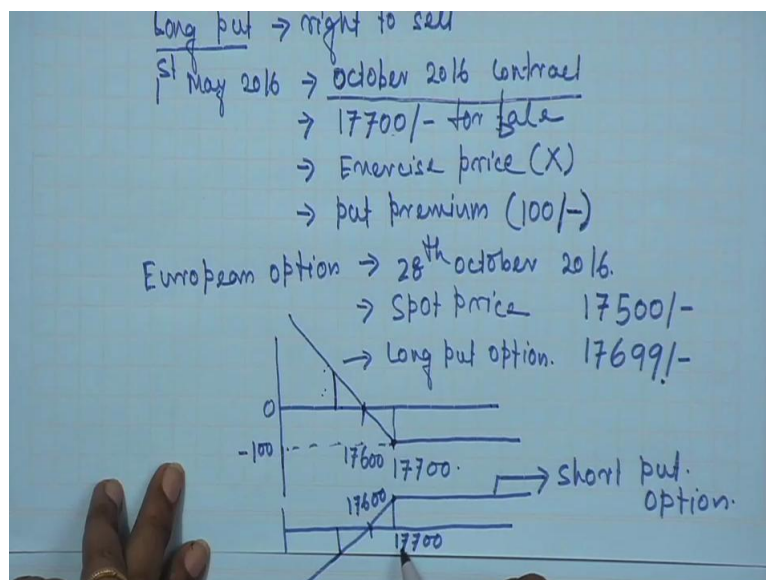 Long put → right to sell
1st May 2016 → October 2016 Contract
→ 17700/- for sale
→ Exercise price (X)
→ put premium (100/-)
European option → 28th october 2016.
→ Spot price 17500/-
→ Long put option. 17699/-
0
-100 17600 17700.
→ Short put option.
17600
17700